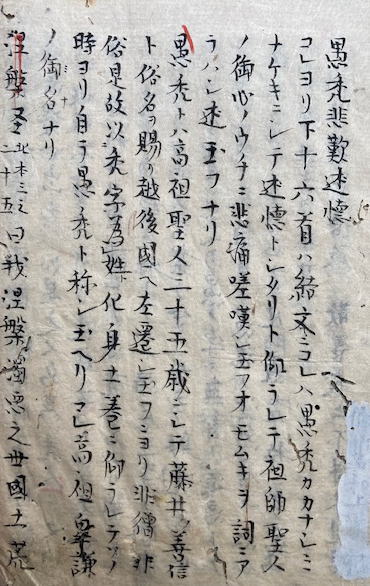 愚禿悲歎述懐
コレヨリ下十六首ハ結文ニコレハ愚禿カカナシミ
ナケキニシテ述懐トシタリト仰ラレテ祖師聖人
ノ御心ノウチニ悲痛嗟嘆シ玉フオモムキヲ詞ニア
ラハシ述玉フナリ
愚禿トハ高祖聖人三十五歳ニシテ藤井ノ善信
ト俗名ヲ賜リ越後國ヘ左遷シ玉フニヨリ非僧非
俗是故以禿字為姓ト化身土巻ニ仰ラレテソノ
時ヨリ自ラ愚禿ト称シ玉ヘリコレ高祖
謙
ノ御名ナリ
涅槃
北本三之
二十五
曰我涅槃濁悪之世國土荒